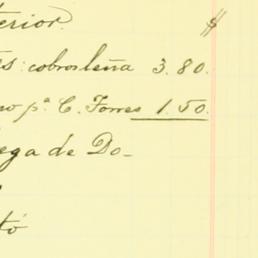 terior. $
s: cobros leña 3.80.
no pª. C. Torres 1.50.
ega de Do-
tó